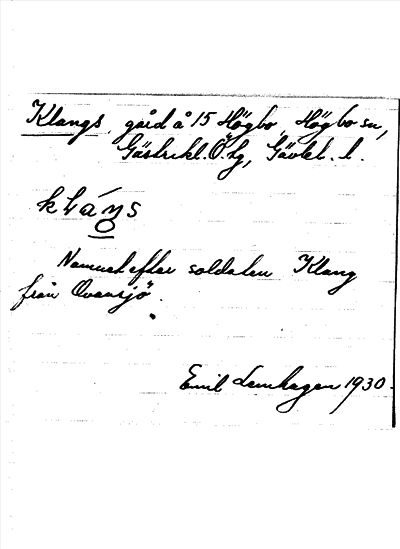 Klangs, gård å 15 Högbo, Högbo sn,
Gästrikl. Ö. tg, Gävleb. l.
kláŋs
Namnet efter soldaten Klang
från Ovansjö.
Emil Lenhagen 1930.